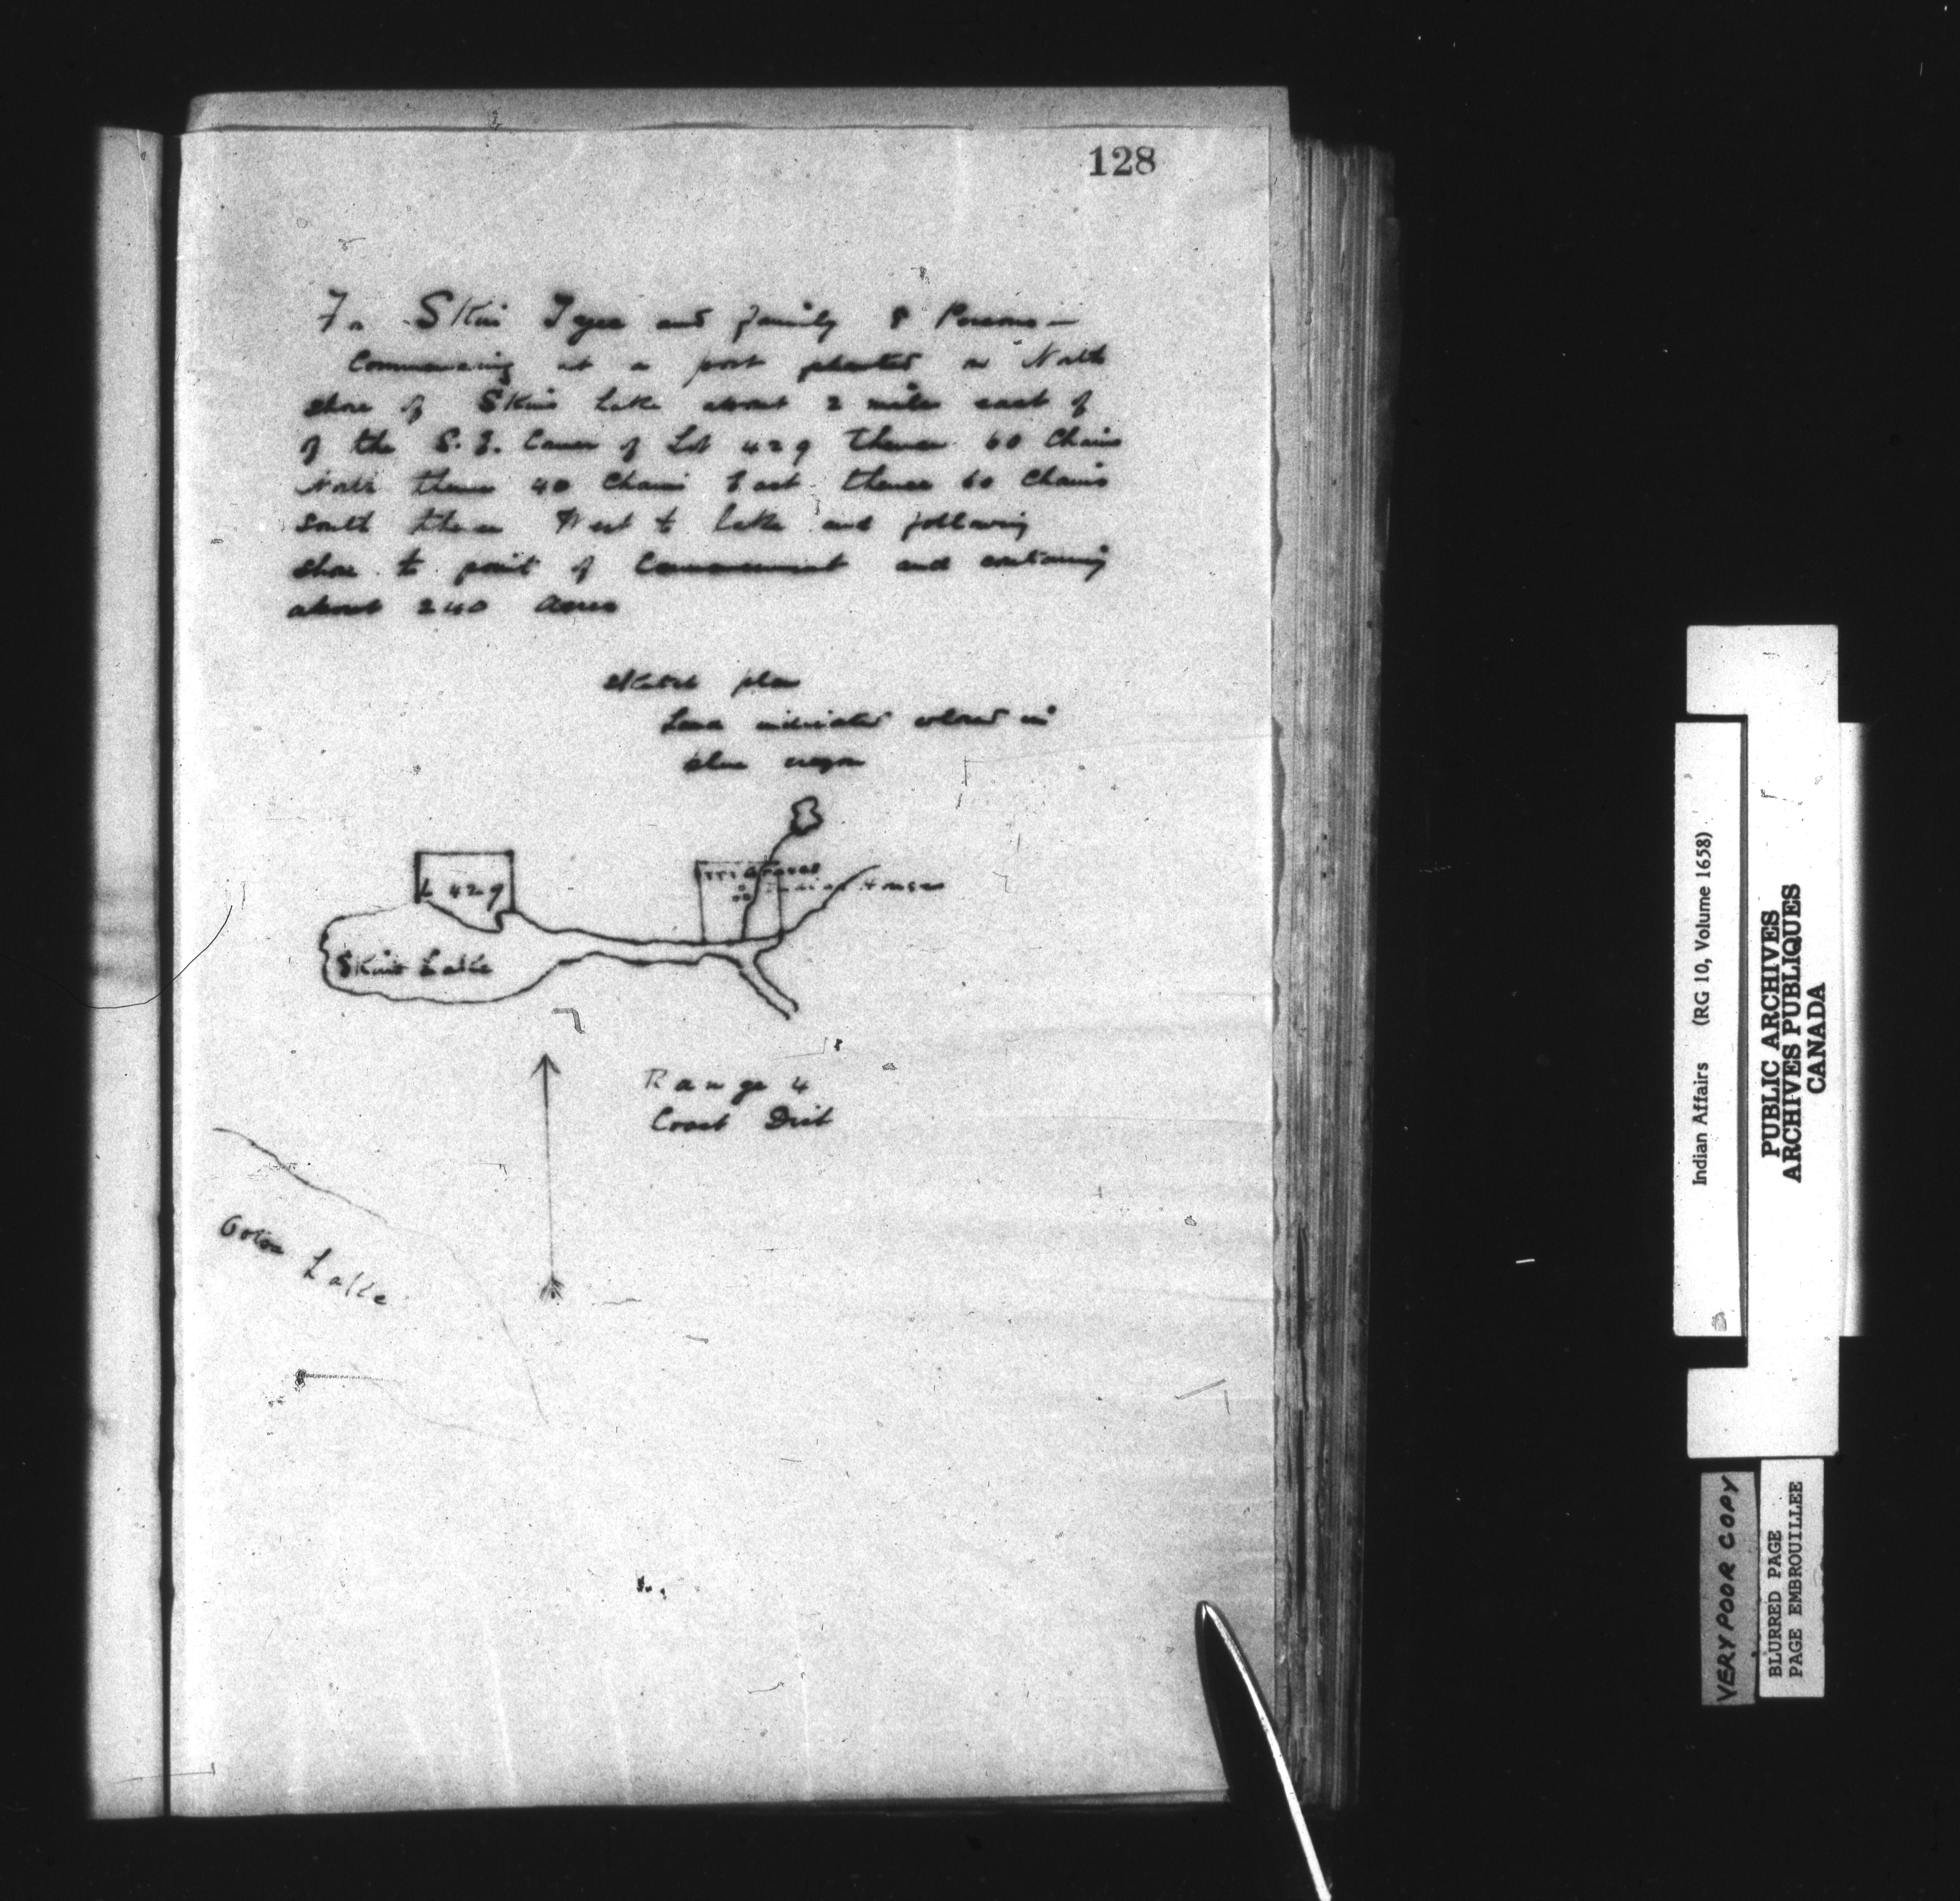 128
For Skin Tyee and family 8 Persons —
Commencing at a post planted on North
shore of Skins Lake about 2 miles east of
of the S.E. Corner of Lot 429 thence 60 Chains
North thence 40 Chains East thence 60 Chains
South thence West to lake and following
shore to point of Commencement and containing
about 240 Acres
Sketch plan
Land indicated colored in
blue crayon
L 429
Graves
Indian Houses
Skins Lake
Range 4
Coast Dist
Ootsa Lake
Indian Affairs (RG 10, Volume 1658)
PUBLIC ARCHIVES
ARCHIVES PUBLIQUES
CANADA
VERY POOR COPY
BLURRED PAGE
PAGE EMBROUILLEE